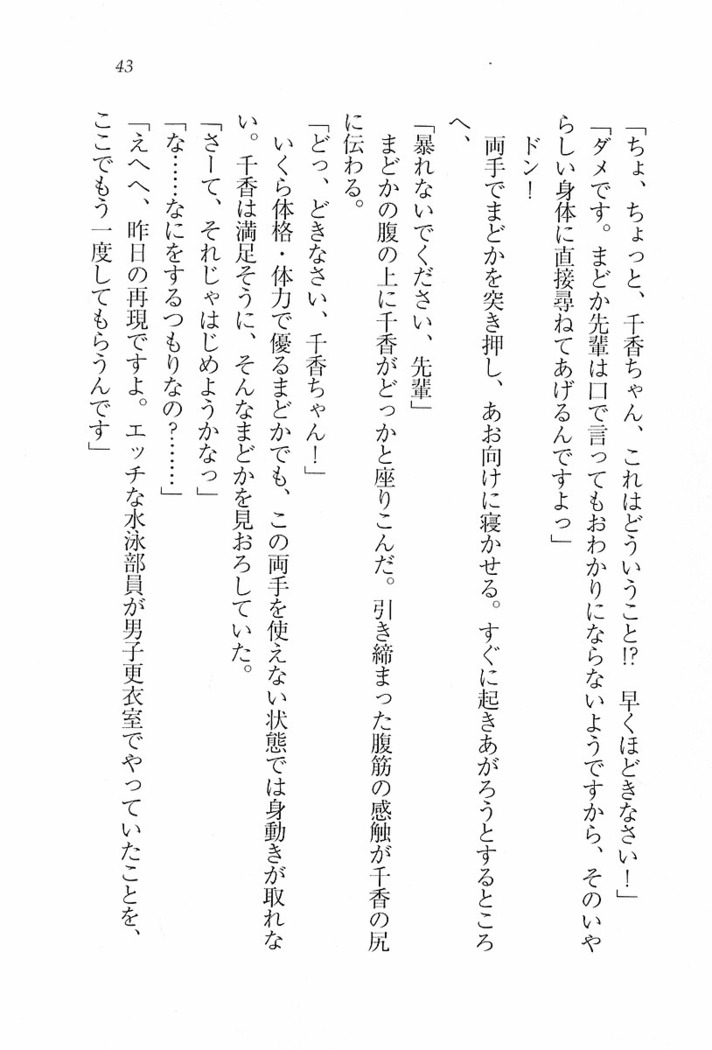 43
「ちょ、ちょっと、千香ちゃん、これはどういうこと!?　早くほどきなさい！」
「ダメです。まどか先輩は口で言ってもおわかりにならないようですから、そのいや
らしい身体に直接尋ねてあげるんですよっ」
ドン！
両手でまどかを突き押し、あお向けに寝かせる。すぐに起きあがろうとするところ
へ、
「暴れないでください、先輩」
まどかの腹の上に千香がどっかと座りこんだ。引き締まった腹筋の感触が千香の尻
に伝わる。
「どっ、どきなさい、千香ちゃん！」
いくら体格・体力で優るまどかでも、この両手を使えない状態では身動きが取れな
い。千香は満足そうに、そんなまどかを見おろしていた。
「さーて、それじゃはじめようかなっ」
「な……なにをするつもりなの？………」
「えへへ、昨日の再現ですよ。エッチな水泳部員が男子更衣室でやっていたことを、
ここでもう一度してもらうんです」